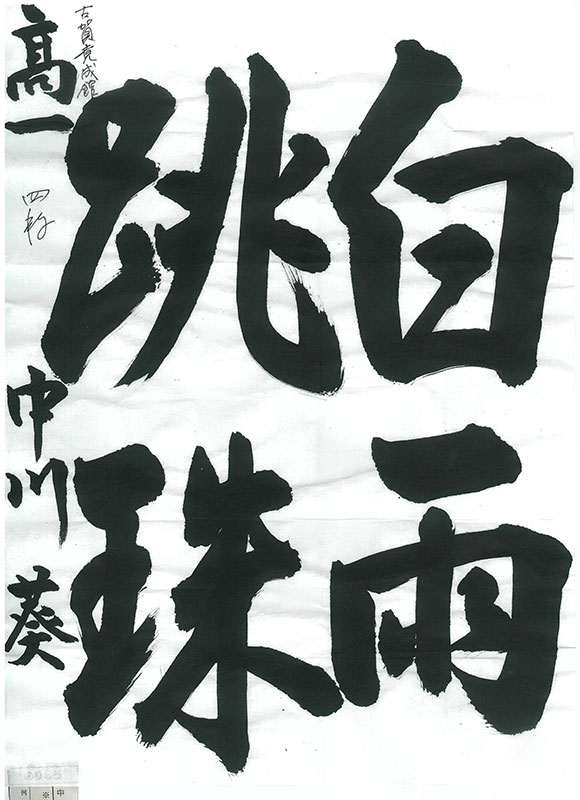 白雨
跳珠
古賀竟成館
高一 四幹 中川葵